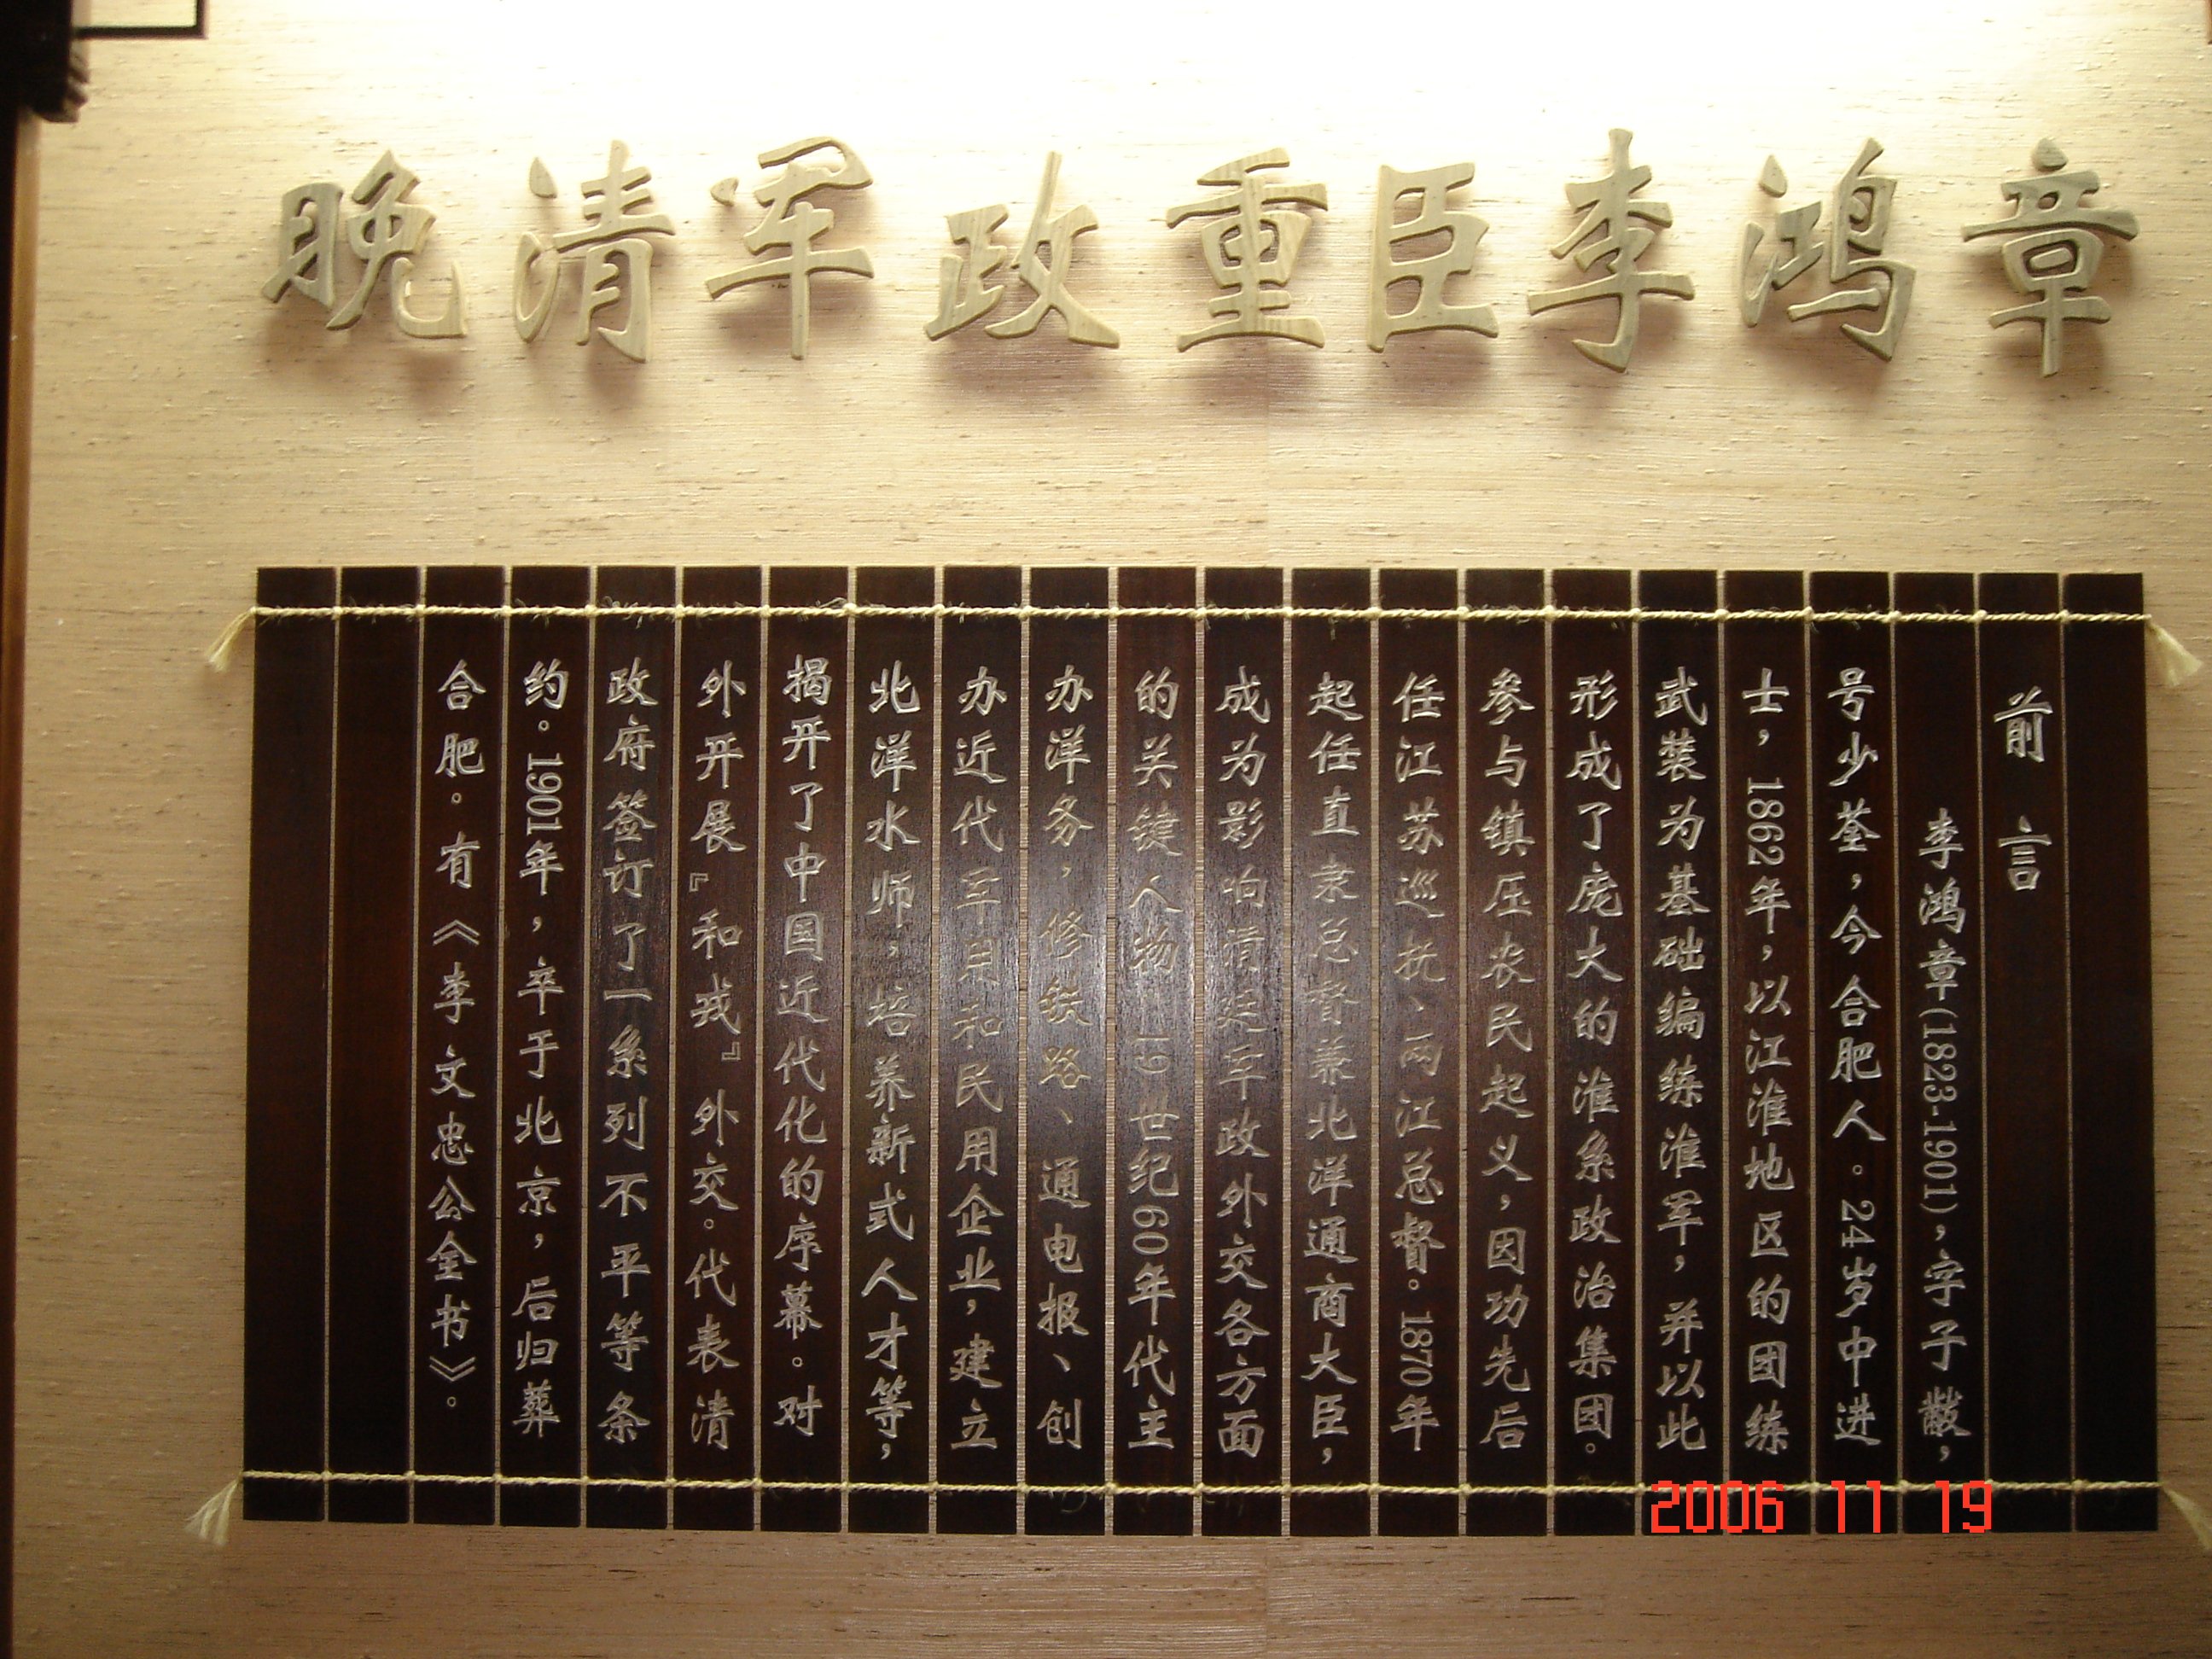 晚清军政重臣李鸿章
前言
李鸿章(1823-1901)，字子黻，
号少荃，今合肥人。24岁中进
士，1862年，以江淮地区的团练
武装为基础编练淮军，并以此
形成了庞大的淮系政治集团。
参与镇压农民起义，因功先后
任江苏巡抚、两江总督。1870年
起任直隶总督兼北洋通商大臣，
成为影响清廷军政外交各方面
的关键人物。19世纪60年代主
办洋务，修铁路、通电报、创
办近代军用和民用企业，建立
北洋水师，培养新式人才等，
揭开了中国近代化的序幕。对
外开展『和戎』外交。代表清
政府签订了一系列不平等条
约。1901年，卒于北京，后归葬
合肥。有《李文忠公全书》。
2006 11 19